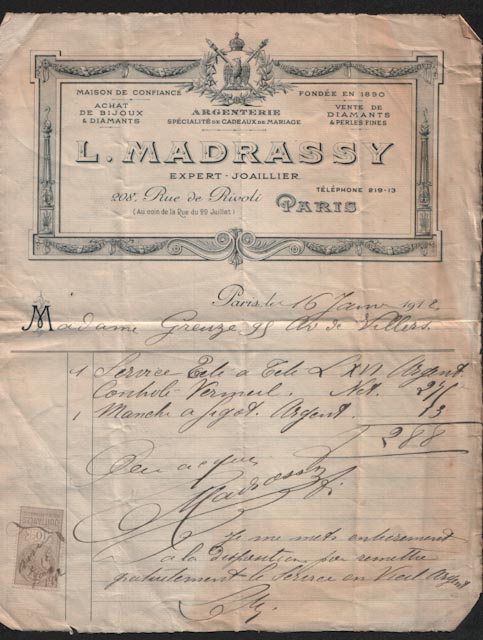 MAISON DE CONFIANCE
FONDÉE EN 1890
ACHAT
DE BIJOUX
& DIAMANTS
ARGENTERIE
SPÉCIALITÉ DE CADEAUX DE MARIAGE
VENTE DE
DIAMANTS
& PERLES FINES
L. MADRASSY
EXPERT-JOAILLIER
208, Rue de Rivoli
(Au coin de la Rue du 29 Juillet)
TÉLÉPHONE 219-13
PARIS
Paris, le 16 Janv 1912
Madame Greuze 95 Av de Villiers
1 Service Tete a Tete L XVI Argent
Controle Vermeil. Net. 275
1 Manche a gigot. Argent. 13
288
Pour acquit
Madrassy
Je me mets entierement
a la disposition pour remettre
gratuitement le Service en Vieil Argent